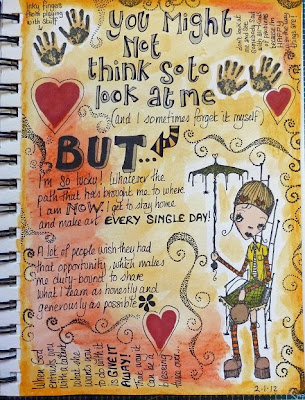 Inky fingers
from playing
with stamps
YOU MIGHT
NOT
think so to
look at me
(and I sometimes forget it myself)
BUT...
I'm so lucky! Whatever the
path that has brought me to where
I am NOW. I get to stay home
and make art EVERY SINGLE DAY!
A lot of people wish they had
that opportunity, which makes
me duty-bound to share
what I learn as honestly and
generously as possible
When God
entrusts you
with a talent
what she
wants you
to do with it
is GIVE IT
AWAY!
That way it
can be a
blessing
twice over...
2-1-12